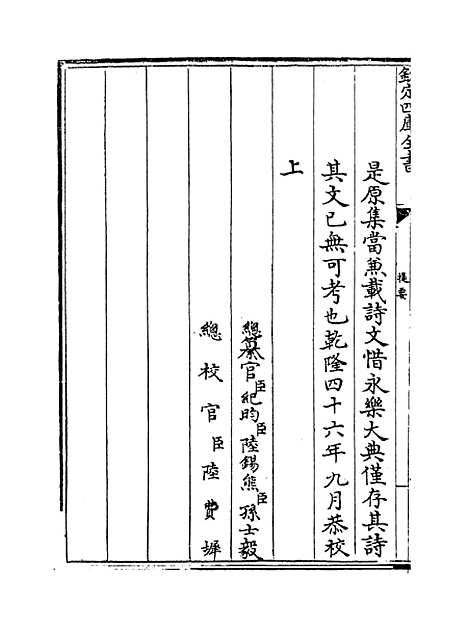 欽定四庫全書
提要
是原集當兼載詩文惜永樂大典僅存其詩
其文已無可考也乾隆四十六年九月恭校
上
總纂官臣紀昀臣陸錫熊臣孫士毅
總校官臣陸費墀